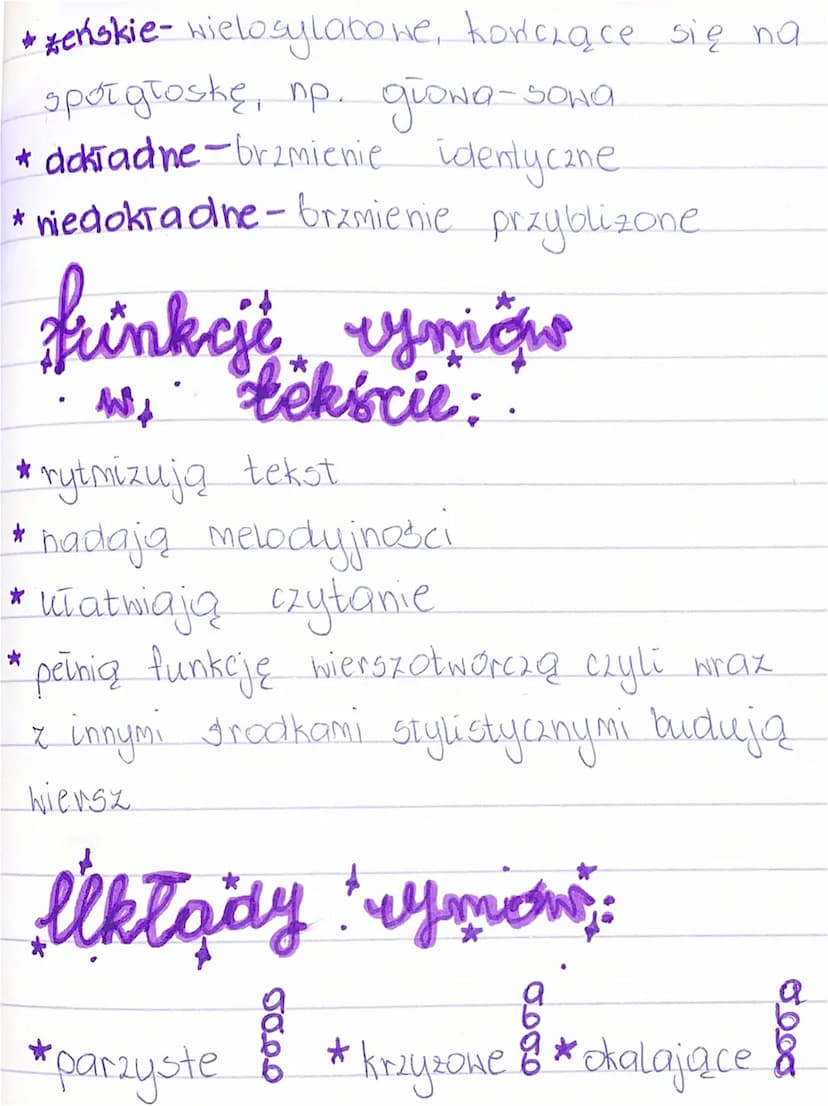 * żeńskie- wielosylabowe, kończące się na
spółgłoskę, np. głowa-sowa
* dokładne-brzmienie identyczne
* niedokładne-brzmienie przybliżone
funkcje rymów
w tekście:
* rytmizują tekst
* nadają melodyjności
* ułatwiają czytanie
* pełnią funkcję wierszotwórczą czyli wraz
z innymi środkami stylistycznymi budują
wiersz
Układy rymów:
* parzyste aabb * krzyżowe abab * okalające abba